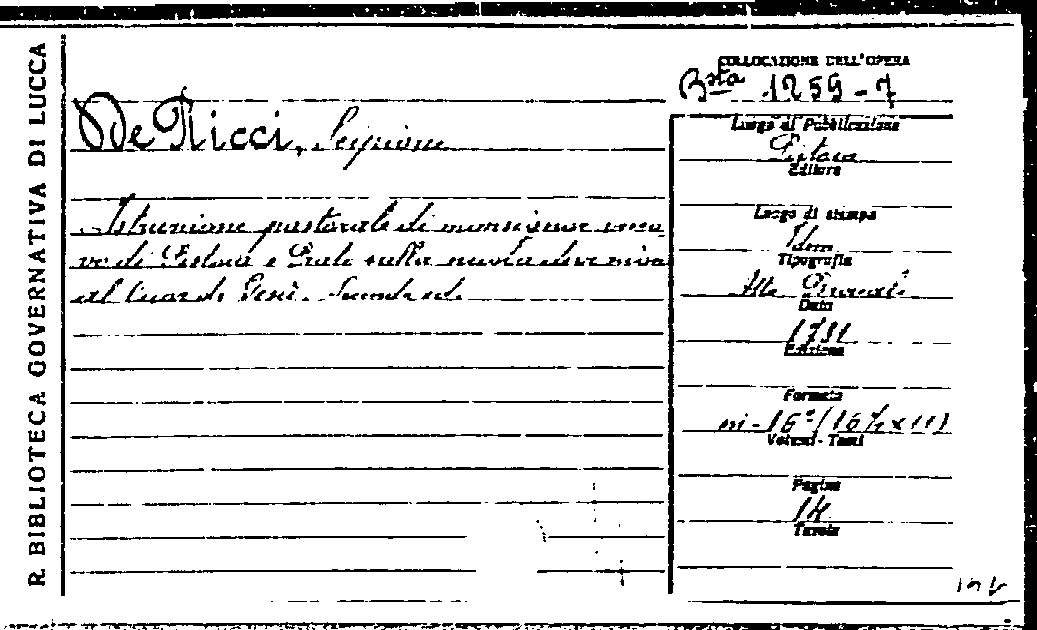 R. BIBLIOTECA GOVERNATIVA DI LUCCA
COLLOCAZIONE DELL'OPERA
Bsta 1259-7
De Ricci, Scipione
Istruzione pastorale di monsignor vesco-
vo di Pistoia e Prato sulla nuova devozione
al Cuor di Gesù. Seconda ed.
Luogo di Pubblicazione
Pistoia
Editore
Luogo di stampa
Idem
Tipografia
Data
1781
Edizione
Formato
in-16°
Volumi - Tomi
Pagine
14
Tavole